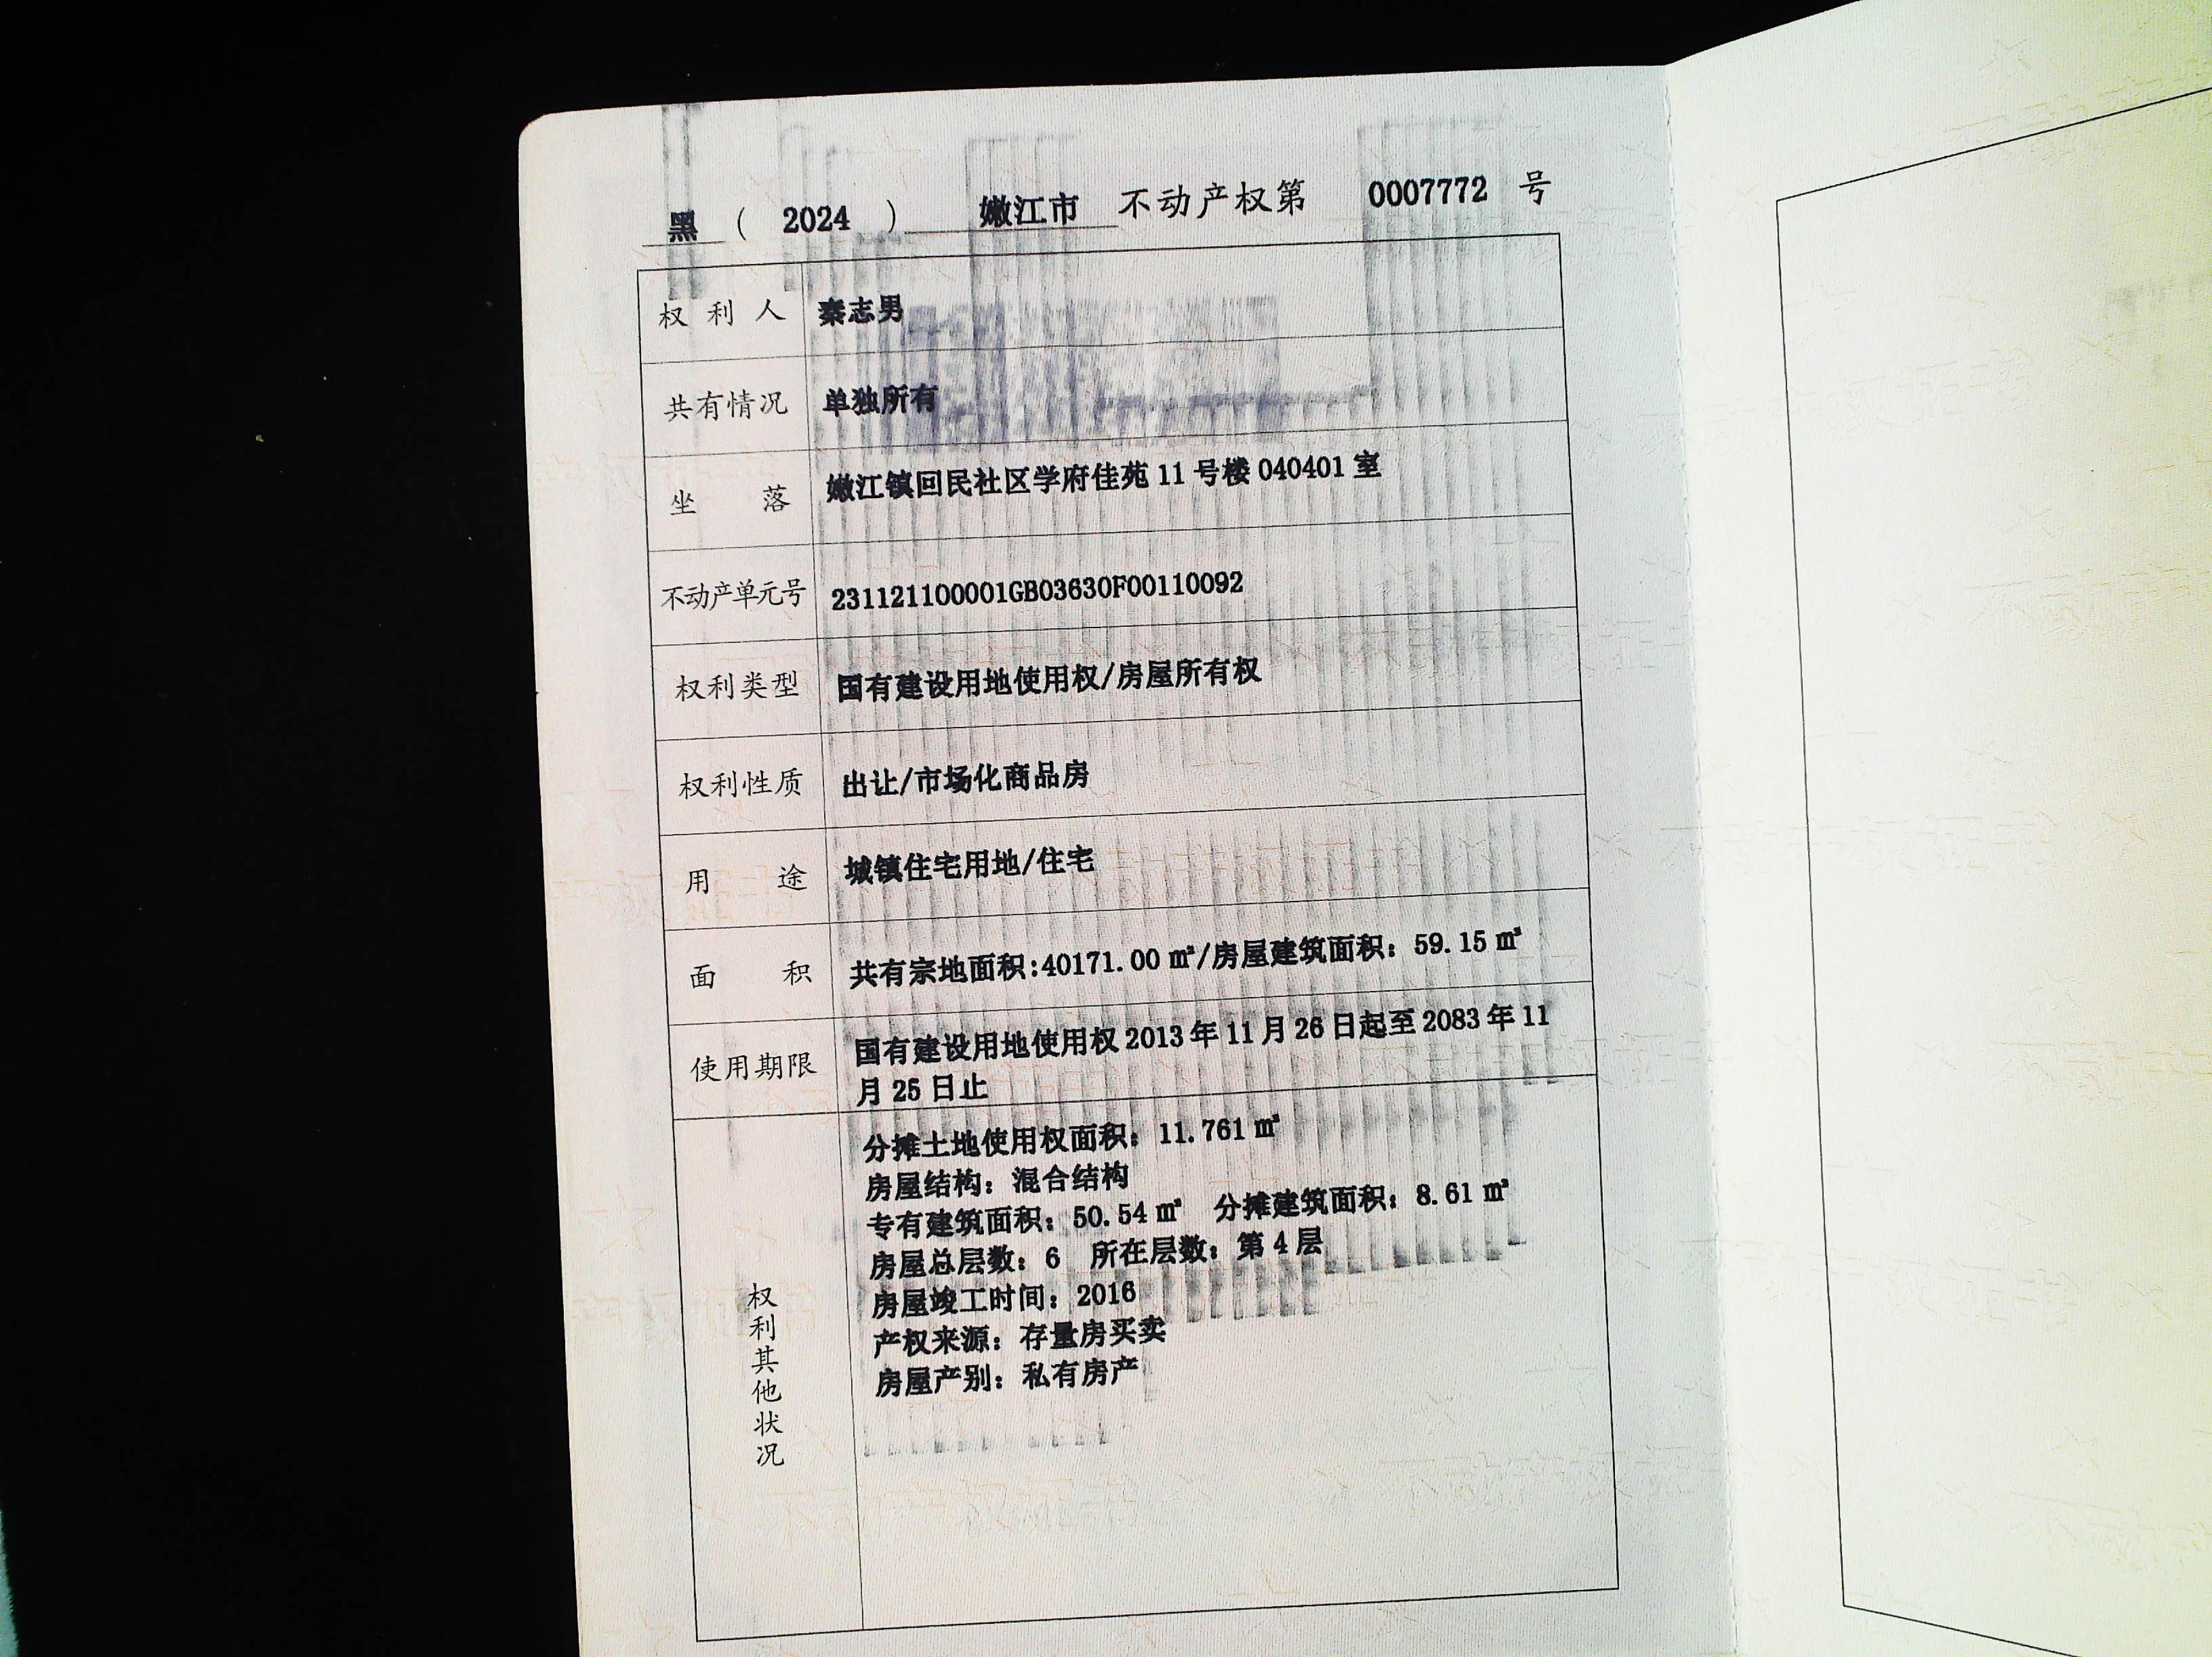 黑 ( 2024 ) 嫩江市 不动产权第 0007772 号
权利人 秦志男
共有情况 单独所有
坐落 嫩江镇回民社区学府佳苑 11 号楼 040401 室
不动产单元号 231121100001GB03630F00110092
权利类型 国有建设用地使用权/房屋所有权
权利性质 出让/市场化商品房
用途 城镇住宅用地/住宅
面积 共有宗地面积:40171.00 ㎡/房屋建筑面积：59.15 ㎡
使用期限 国有建设用地使用权 2013 年 11 月 26 日起至 2083 年 11
月 25 日止
权利其他状况
分摊土地使用权面积：11.761 ㎡
房屋结构：混合结构
专有建筑面积：50.54 ㎡ 分摊建筑面积：8.61 ㎡
房屋总层数：6 所在层数：第 4 层
房屋竣工时间：2016
产权来源：存量房买卖
房屋产别：私有房产